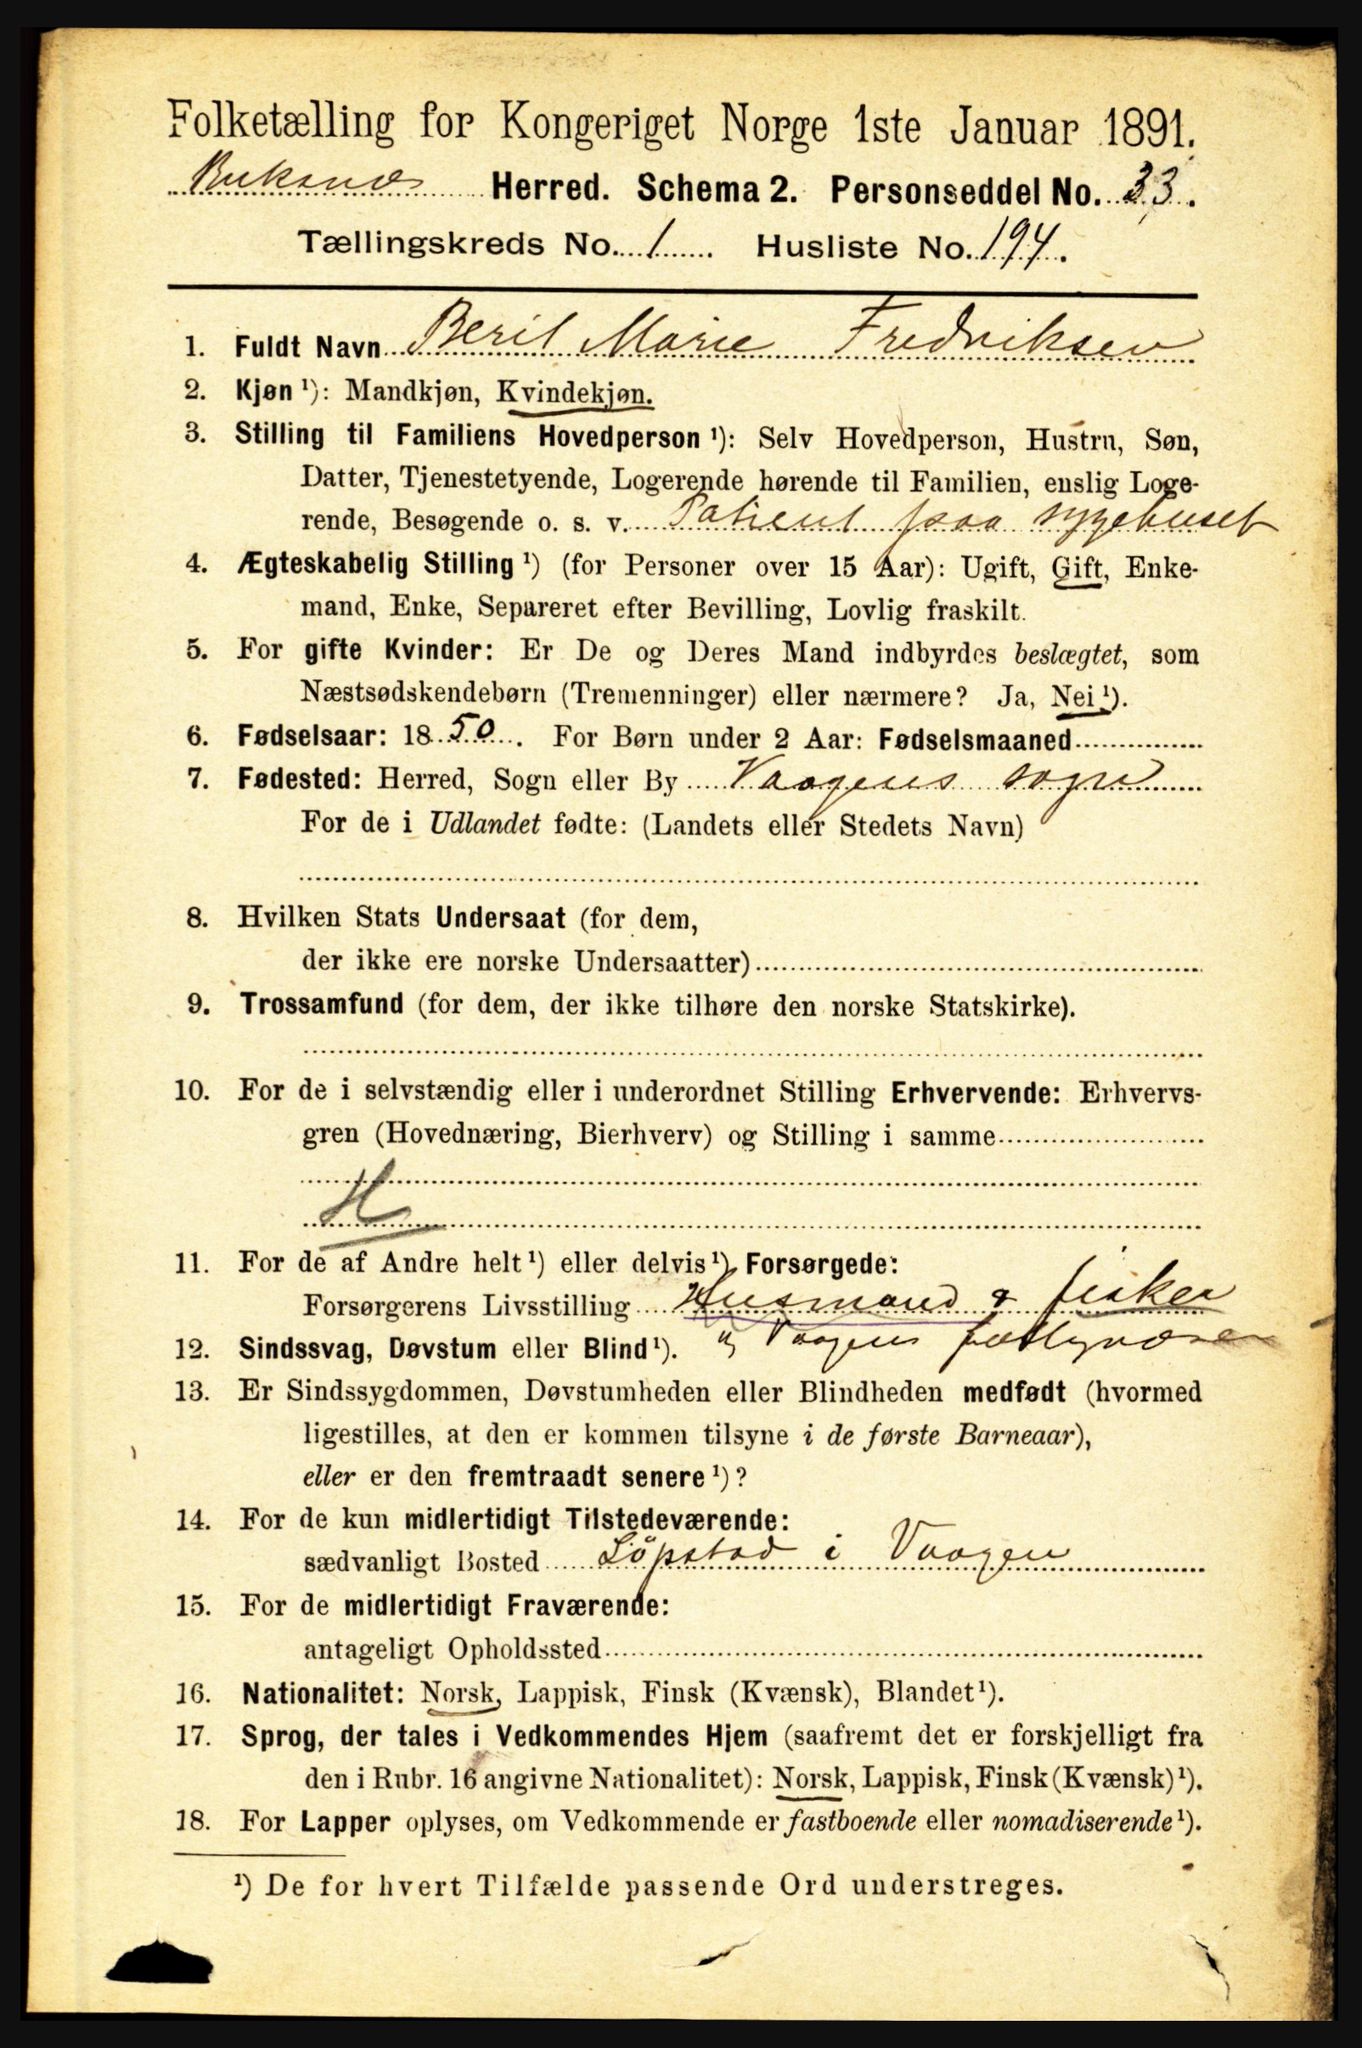 Folketælling for Kongeriget Norge 1ste Januar 1891.
Buksnæs Herred. Schema 2. Personseddel No. 33.
Tællingskreds No. 1. Husliste No. 194.
1. Fuldt Navn Berit Marie Fredriksen
2. Kjøn ¹): Mandkjøn, Kvindekjøn.
3. Stilling til Familiens Hovedperson ¹): Selv Hovedperson, Hustru, Søn,
Datter, Tjenestetyende, Logerende hørende til Familien, enslig Loge-
rende, Besøgende o. s. v. Patient paa sygehuset
4. Ægteskabelig Stilling ¹) (for Personer over 15 Aar): Ugift, Gift, Enke-
mand, Enke, Separeret efter Bevilling, Lovlig fraskilt.
5. For gifte Kvinder: Er De og Deres Mand indbyrdes beslægtet, som
Næstsødskendebørn (Tremenninger) eller nærmere? Ja, Nei ¹).
6. Fødselsaar: 1850. For Børn under 2 Aar: Fødselsmaaned
7. Fødested: Herred, Sogn eller By Vaagens sogn
For de i Udlandet fødte: (Landets eller Stedets Navn)
8. Hvilken Stats Undersaat (for dem,
der ikke ere norske Undersaatter)
9. Trossamfund (for dem, der ikke tilhøre den norske Statskirke).
10. For de i selvstændig eller i underordnet Stilling Erhvervende: Erhvervs-
gren (Hovednæring, Bierhverv) og Stilling i samme
H
11. For de af Andre helt ¹) eller delvis ¹) Forsørgede:
Forsørgerens Livsstilling Husmand & fisker
12. Sindssvag, Døvstum eller Blind ¹). Vaagens fattigvæsen
13. Er Sindssygdommen, Døvstumheden eller Blindheden medfødt (hvormed
ligestilles, at den er kommen tilsyne i de første Barneaar),
eller er den fremtraadt senere ¹)?
14. For de kun midlertidigt Tilstedeværende:
sædvanligt Bosted Löpstad i Vaagen
15. For de midlertidigt Fraværende:
antageligt Opholdssted
16. Nationalitet: Norsk, Lappisk, Finsk (Kvænsk), Blandet ¹).
17. Sprog, der tales i Vedkommendes Hjem (saafremt det er forskjelligt fra
den i Rubr. 16 angivne Nationalitet): Norsk, Lappisk, Finsk (Kvænsk) ¹).
18. For Lapper oplyses, om Vedkommende er fastboende eller nomadiserende ¹).
¹) De for hvert Tilfælde passende Ord understreges.